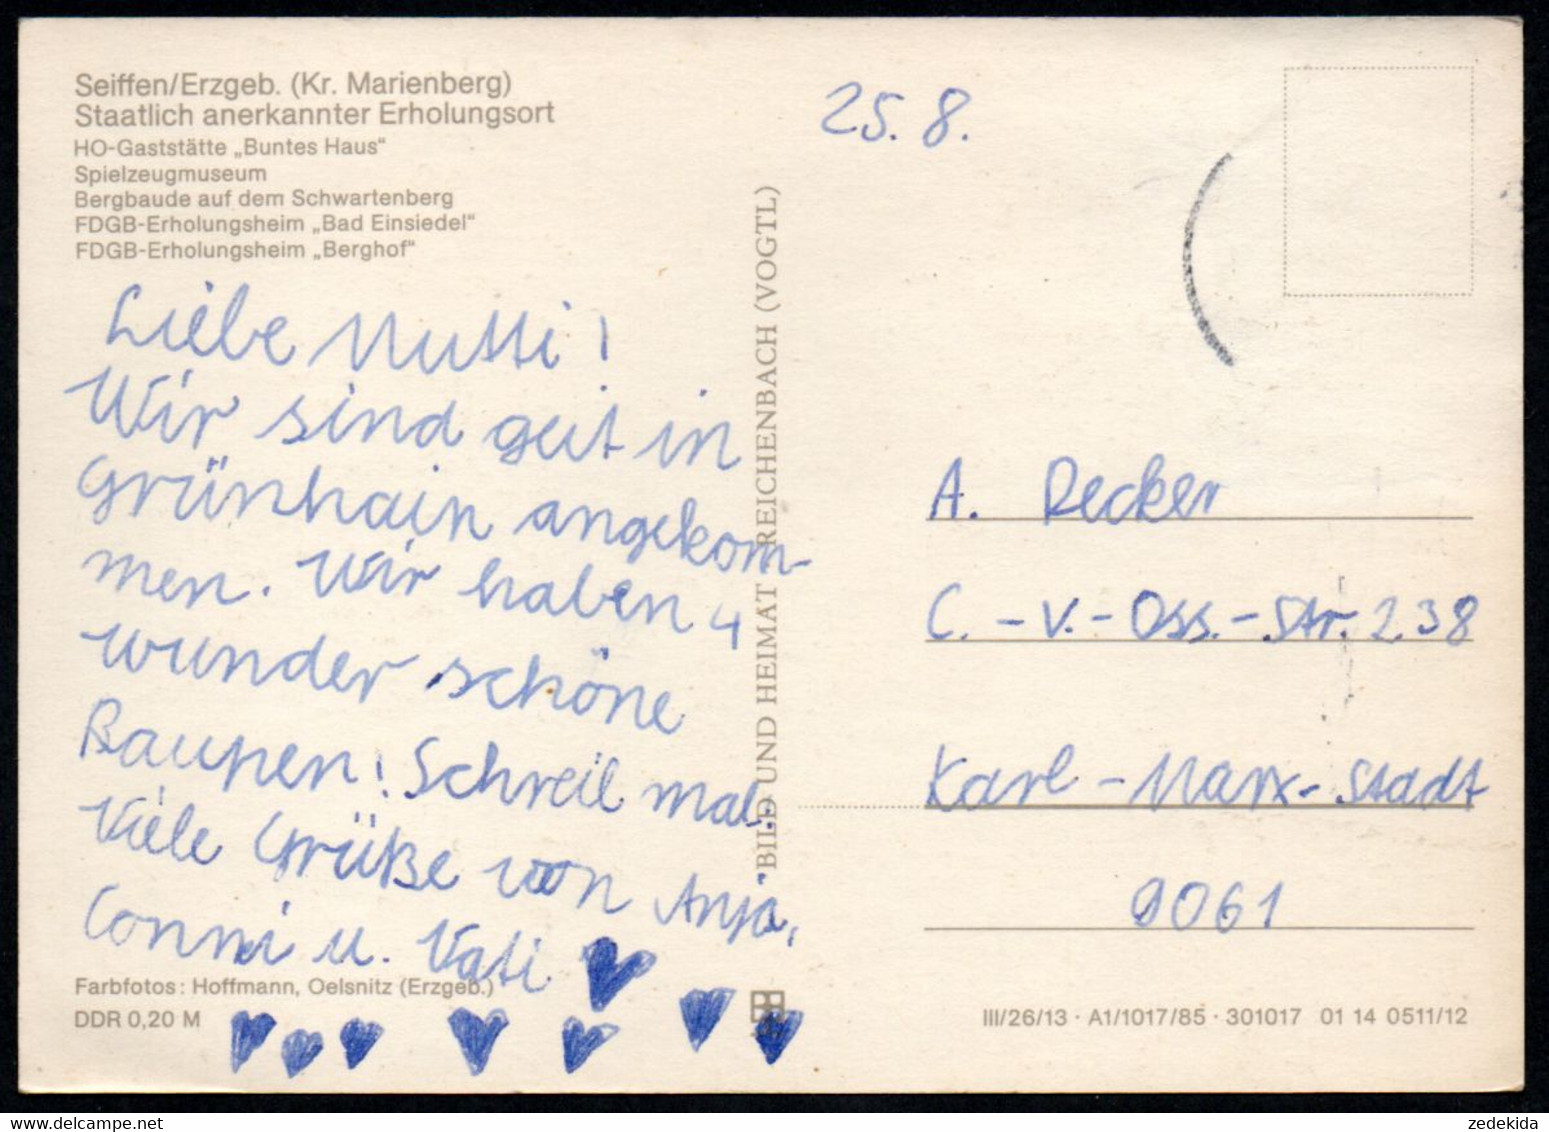 Seiffen/Erzgeb. (Kr. Marienberg)
Staatlich anerkannter Erholungsort
HO-Gaststätte „Buntes Haus“
Spielzeugmuseum
Bergbaude auf dem Schwartenberg
FDGB-Erholungsheim „Bad Einsiedel“
FDGB-Erholungsheim „Berghof“
Liebe Mutti!
Wir sind gut in
Grünhain angekom-
men. Wir haben 4
wunder schöne
Raupen! Schreib mal.
Viele Grüße von Anja,
Conni u. Vati
Farbfotos: Hoffmann, Oelsnitz (Erzgeb.)
DDR 0,20 M
BILD UND HEIMAT REICHENBACH (VOGTL)
25. 8.
A. Decker
C.-v.-Oss.-Str. 238
Karl-Marx-Stadt
9061
III/26/13 · A1/1017/85 · 301017 01 14 0511/12
zedekida